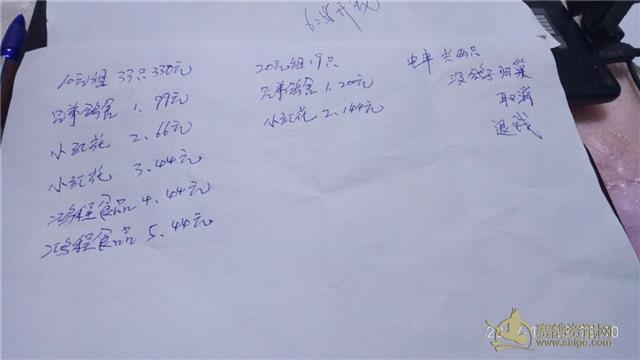 10元组 33只330元
兄弟鸽舍 1.99元
小红花 2.66元
小红花 3.44元
鸿程食品 4.44元
鸿程食品 5.44元
20元组19只
兄弟鸽舍 1.200元
小红花 2.144元
共两只
没鸽子归巢
取消
退钱
赛鸽资讯网
www.saige.com